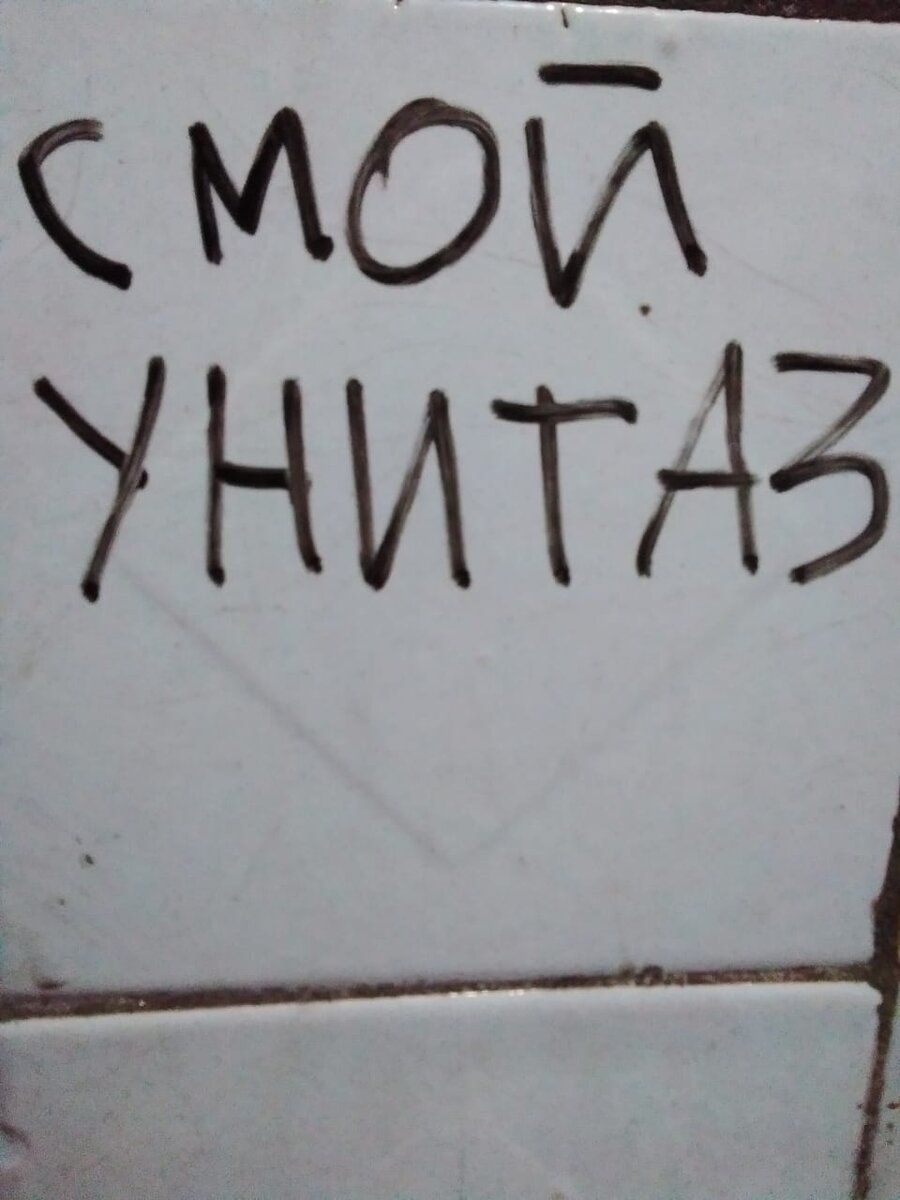 СМОЙ
УНИТАЗ